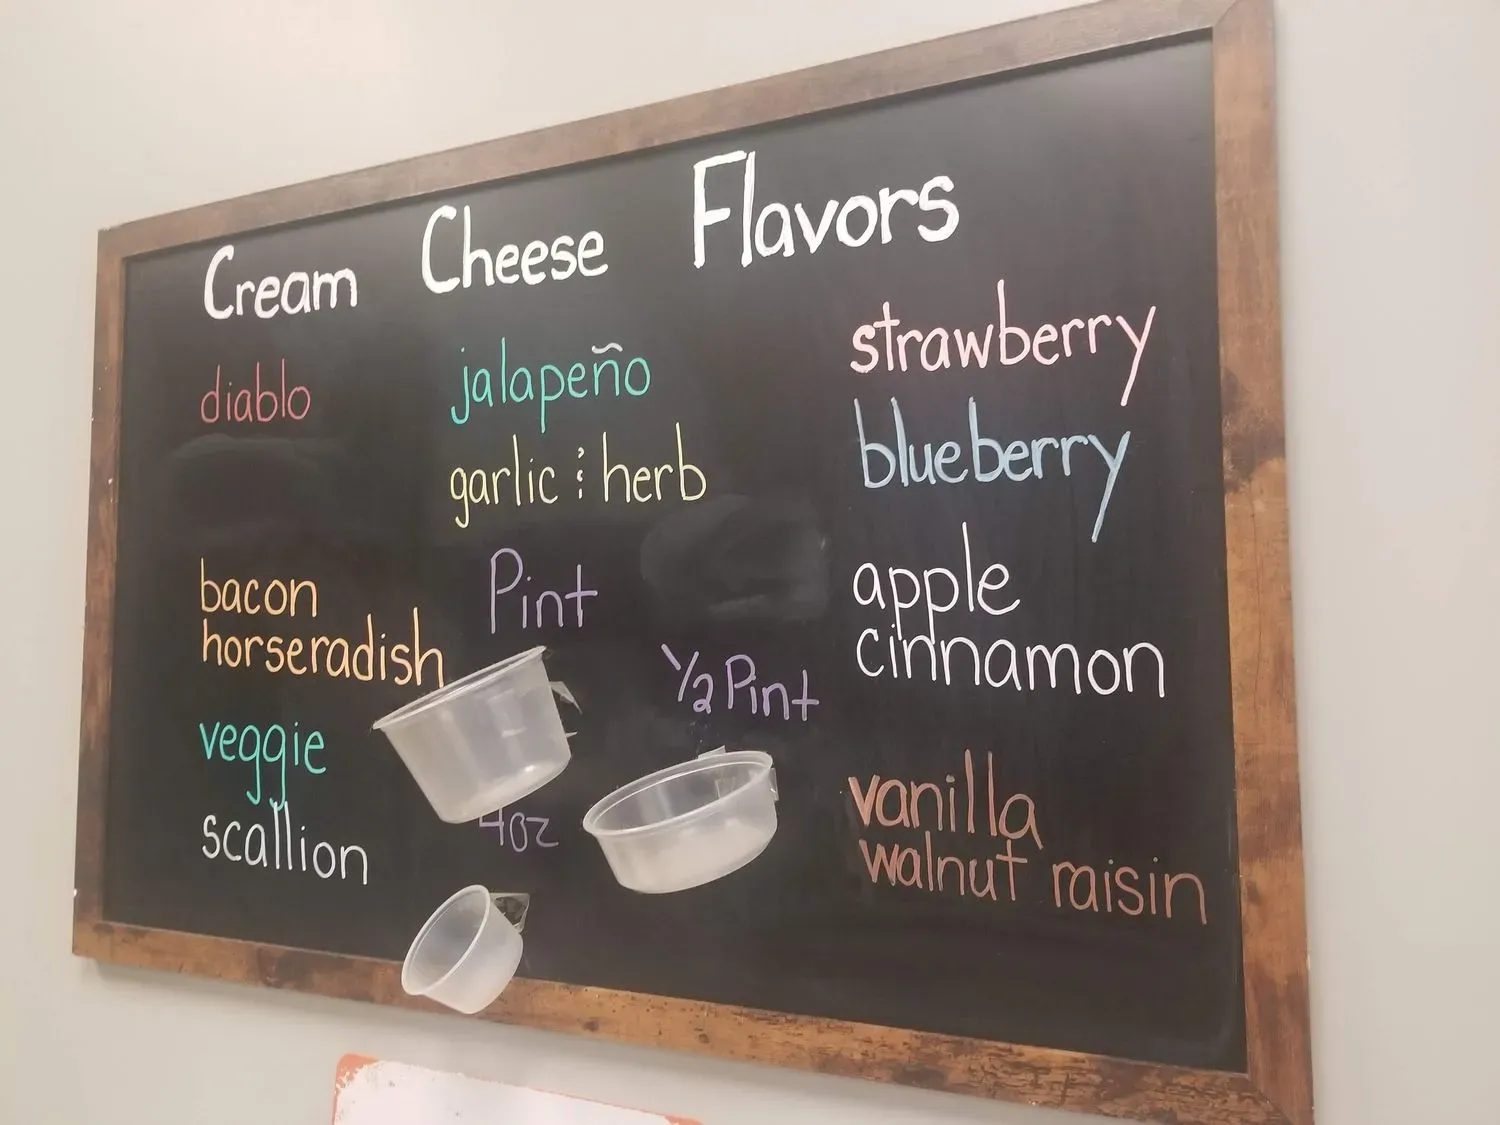 Cream Cheese Flavors
diablo
bacon
horseradish
veggie
scallion
jalapeño
garlic & herb
Pint
1/2 Pint
4oz
strawberry
blueberry
apple
cinnamon
vanilla
walnut raisin